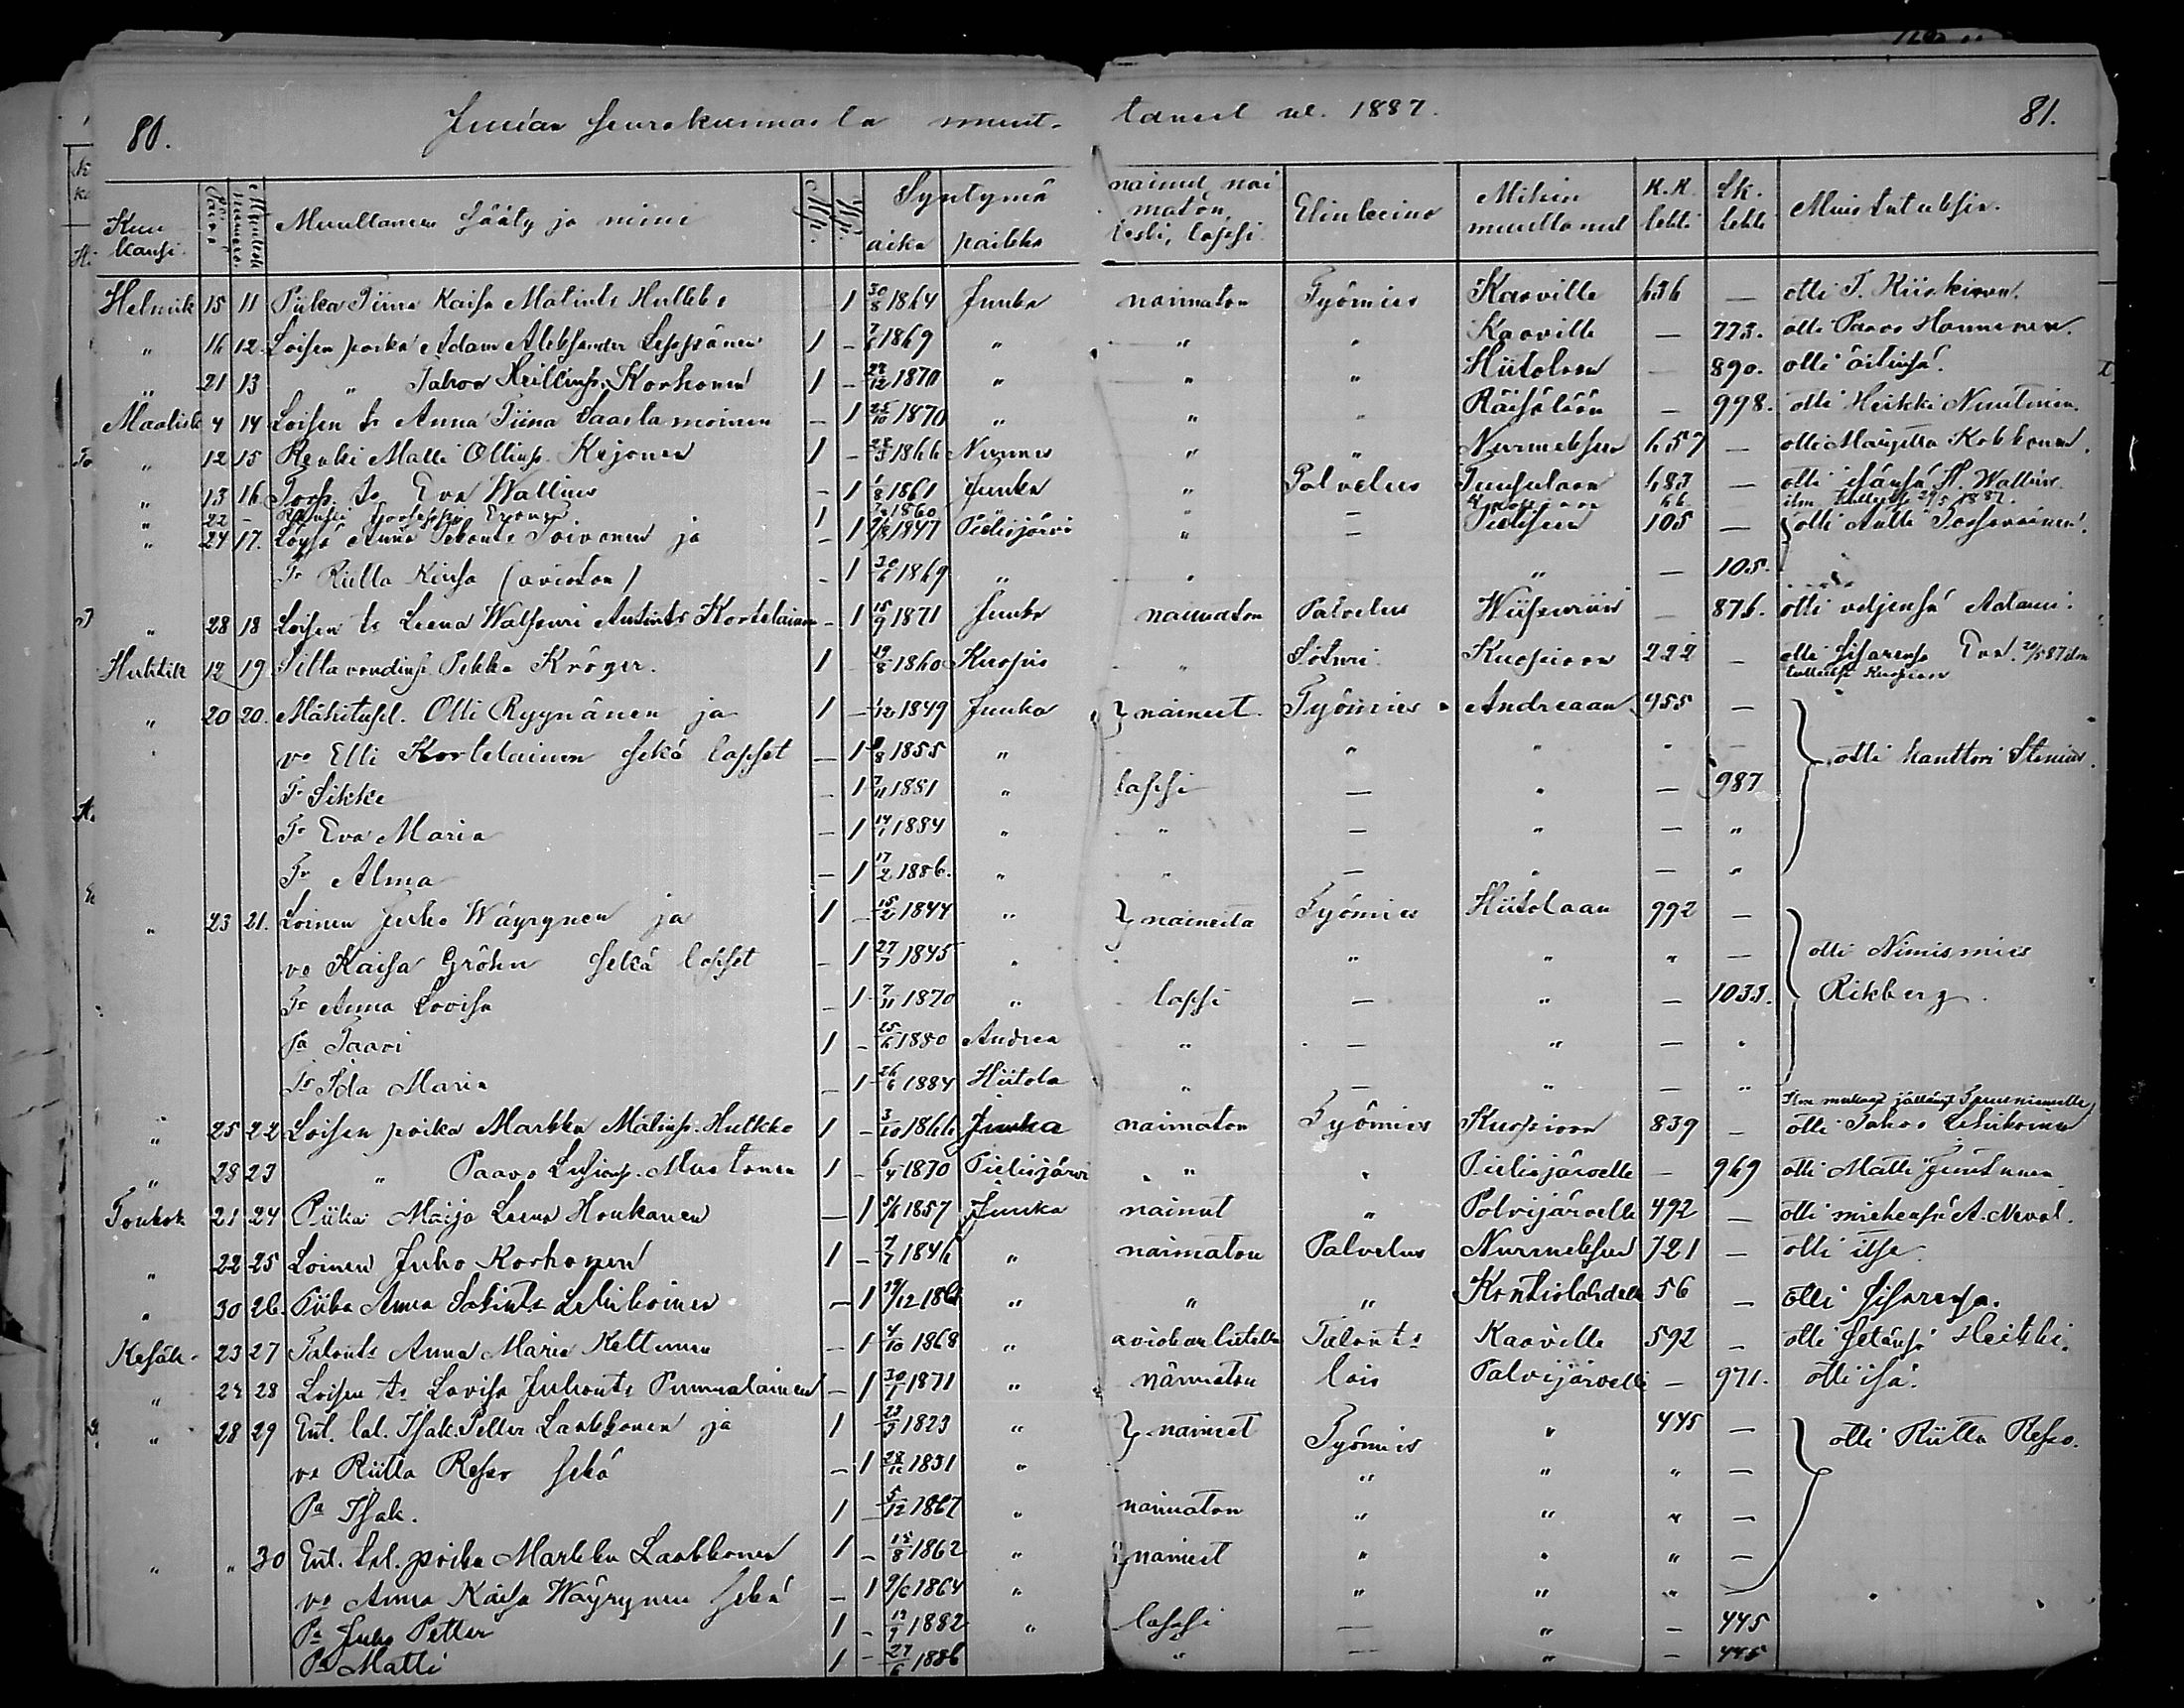 80. Juuan seurakunnasta muut- tanest v. 1887. 81.
Kuu kausi. Päivä Muuttaneen sääty ja nimi Mp. Vp. Syntymä aika paikka nainut, nai maton, leski, lapsi Elinkeino Mihin muuttanut R.K. lehti Lk. lehti Muistutuksia.
Helmik 15 11 Piika Tiina Kaisa Matints Hulkko 1 30/8 1864 Juuka naimaton Työmies Kaaville 636 — otti T. Kiiskinen.
" 16 12. Loisen poika Adam Aleksander Leppänen 1 — 1869 " " " Kaaville — 773. otti Paavo Hanninen.
" 21 13 " Jahov Heikinp. Korhonen 1 — 1870 " " " Hiitolaan — 890. otti äitinsä.
Maalisk 4 14 Loisen tr Anna Tiina Saastamoinen — 1 25/10 1870 " " " Räisälään — 998. otti Heikki Nuutinen.
" 12 15 Renki Matti Ollinp. Kejonen 1 — 1866 Nurmes " " Nurmeksen 657 — otti Marjetta Kokkonen.
" 13 16 Torp. tr Eva Wallius — 1 1/8 1861 Juuka " Palvelus Tuusulaan 683 — otti isänsä H. Wallius.
" 22 — 1 1860 " — 66
" 24 17. Löysä Anna Pekants Toivonen ja — 1 1847 Pielisjärvi " — 105 — otti Antti
Tr Riitta Kiusa (avioton) — 1 30/6 1869 " " " — 105.
" 28 18 Loisen tr Leena Walpuri Antints Kortelainen — 1 15/9 1871 Juuka naimaton Palvelus Wiipuriin — 876. otti veljensä Adami.
Huhtik 12 19 Siltavoudinp. Pekka Kröger. 1 19/8 1860 Kuopio " Soturi Kuopioon 222 — otti sisarensa Eva.
" 20 20. Mäkitupl. Olli Ryynänen ja 1 — 1/12 1849 Juuka } naineet. Työmies Andreaan 955 —
vo Elli Kortelainen sekä lapset — 1 8/8 1855 " " " " — otti kanttori Stenius.
Tr Sikke — 1 7/11 1881 " lapsi — " — 987
Tr Eva Maria — 1 14/1 1884 " " — " — "
Tr Alma — 1 17/2 1886. " " — " — "
" 23 21. Loinen Juho Wäyrynen ja 1 — 15/2 1844 " } naineita Työmies Hiitolaan 992 —
vo Kaisa Gröhn sekä lapset — 1 27/7 1845 " " " " — otti Nimismies
Tr Anna Lovisa — 1 7/11 1870 " lapsi — " — 1033. Rikberg.
Pa Taavi 1 — 25/6 1880 Andrea " — " — "
Tr Ida Maria — 1 26/6 1884 Hiitola " — " — "
" 25 22 Loisen poika Markku Matinp. Hulkko 1 — 3/10 1866 Juuka naimaton Työmies Kuopioon 839 — otti Jahov Lehikoinen
" 28 23 " Paavo Mustonen 1 — 6/4 1870 Pielisjärvi " " Pielisjärvelle — 969 otti Matti Juutinen
Toukok 21 24 Piika Maija Leena Honkanen — 1 5/6 1857 Juuka nainut " Polvijärvelle 492 — otti miehensä A. Neval.
" 22 25 Loinen Juho Korhonen 1 — 7/7 1846 " naimaton Palvelus Nurmeksen 721 — otti itse.
" 30 26. Piika Anna Lehikoinen — 1 " " " Kontiolahdelle 56 — otti sisarensa.
Kesäk 23 27 Talonts Anna Maria Kettunen — 1 4/10 1868 " aviokuulutettu Talonts Kaaville 592 — otti setänsä Heikki.
" 24 28 Loisen tr Lovisa Juhonts Purmalainen — 1 30/1 1871 " naimaton lois Polvijärvelle — 971. otti isä.
" 28 29 Ent. tal. Isak Petter Laakkonen ja 1 23/3 1823 " } naineet Työmies " 445 — otti Riitta Reko.
vo Riitta Reko sekä — 1 1831 " " " " —
Pa Isak. 1 — 5/12 1867 " naimaton " " " —
" " 30 Ent. tal. poika Markku Laakkonen 1 — 15/8 1862 " } naineet " " " —
vo Anna Kaisa Wäyrynen sekä — 1 9/6 1864 " " " " —
Pa Juho Petter 1 — 19/9 1882 " lapsi — " — 445
Pa Matti 1 — 27/6 1886 " — " — 445